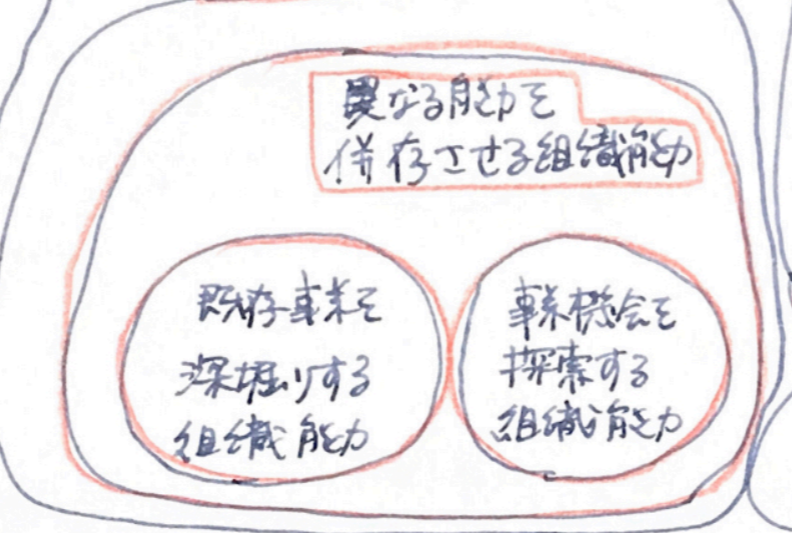 異なる能力を
併存させる組織能力
既存事業を
深堀りする
組織能力
事業機会を
探索する
組織能力